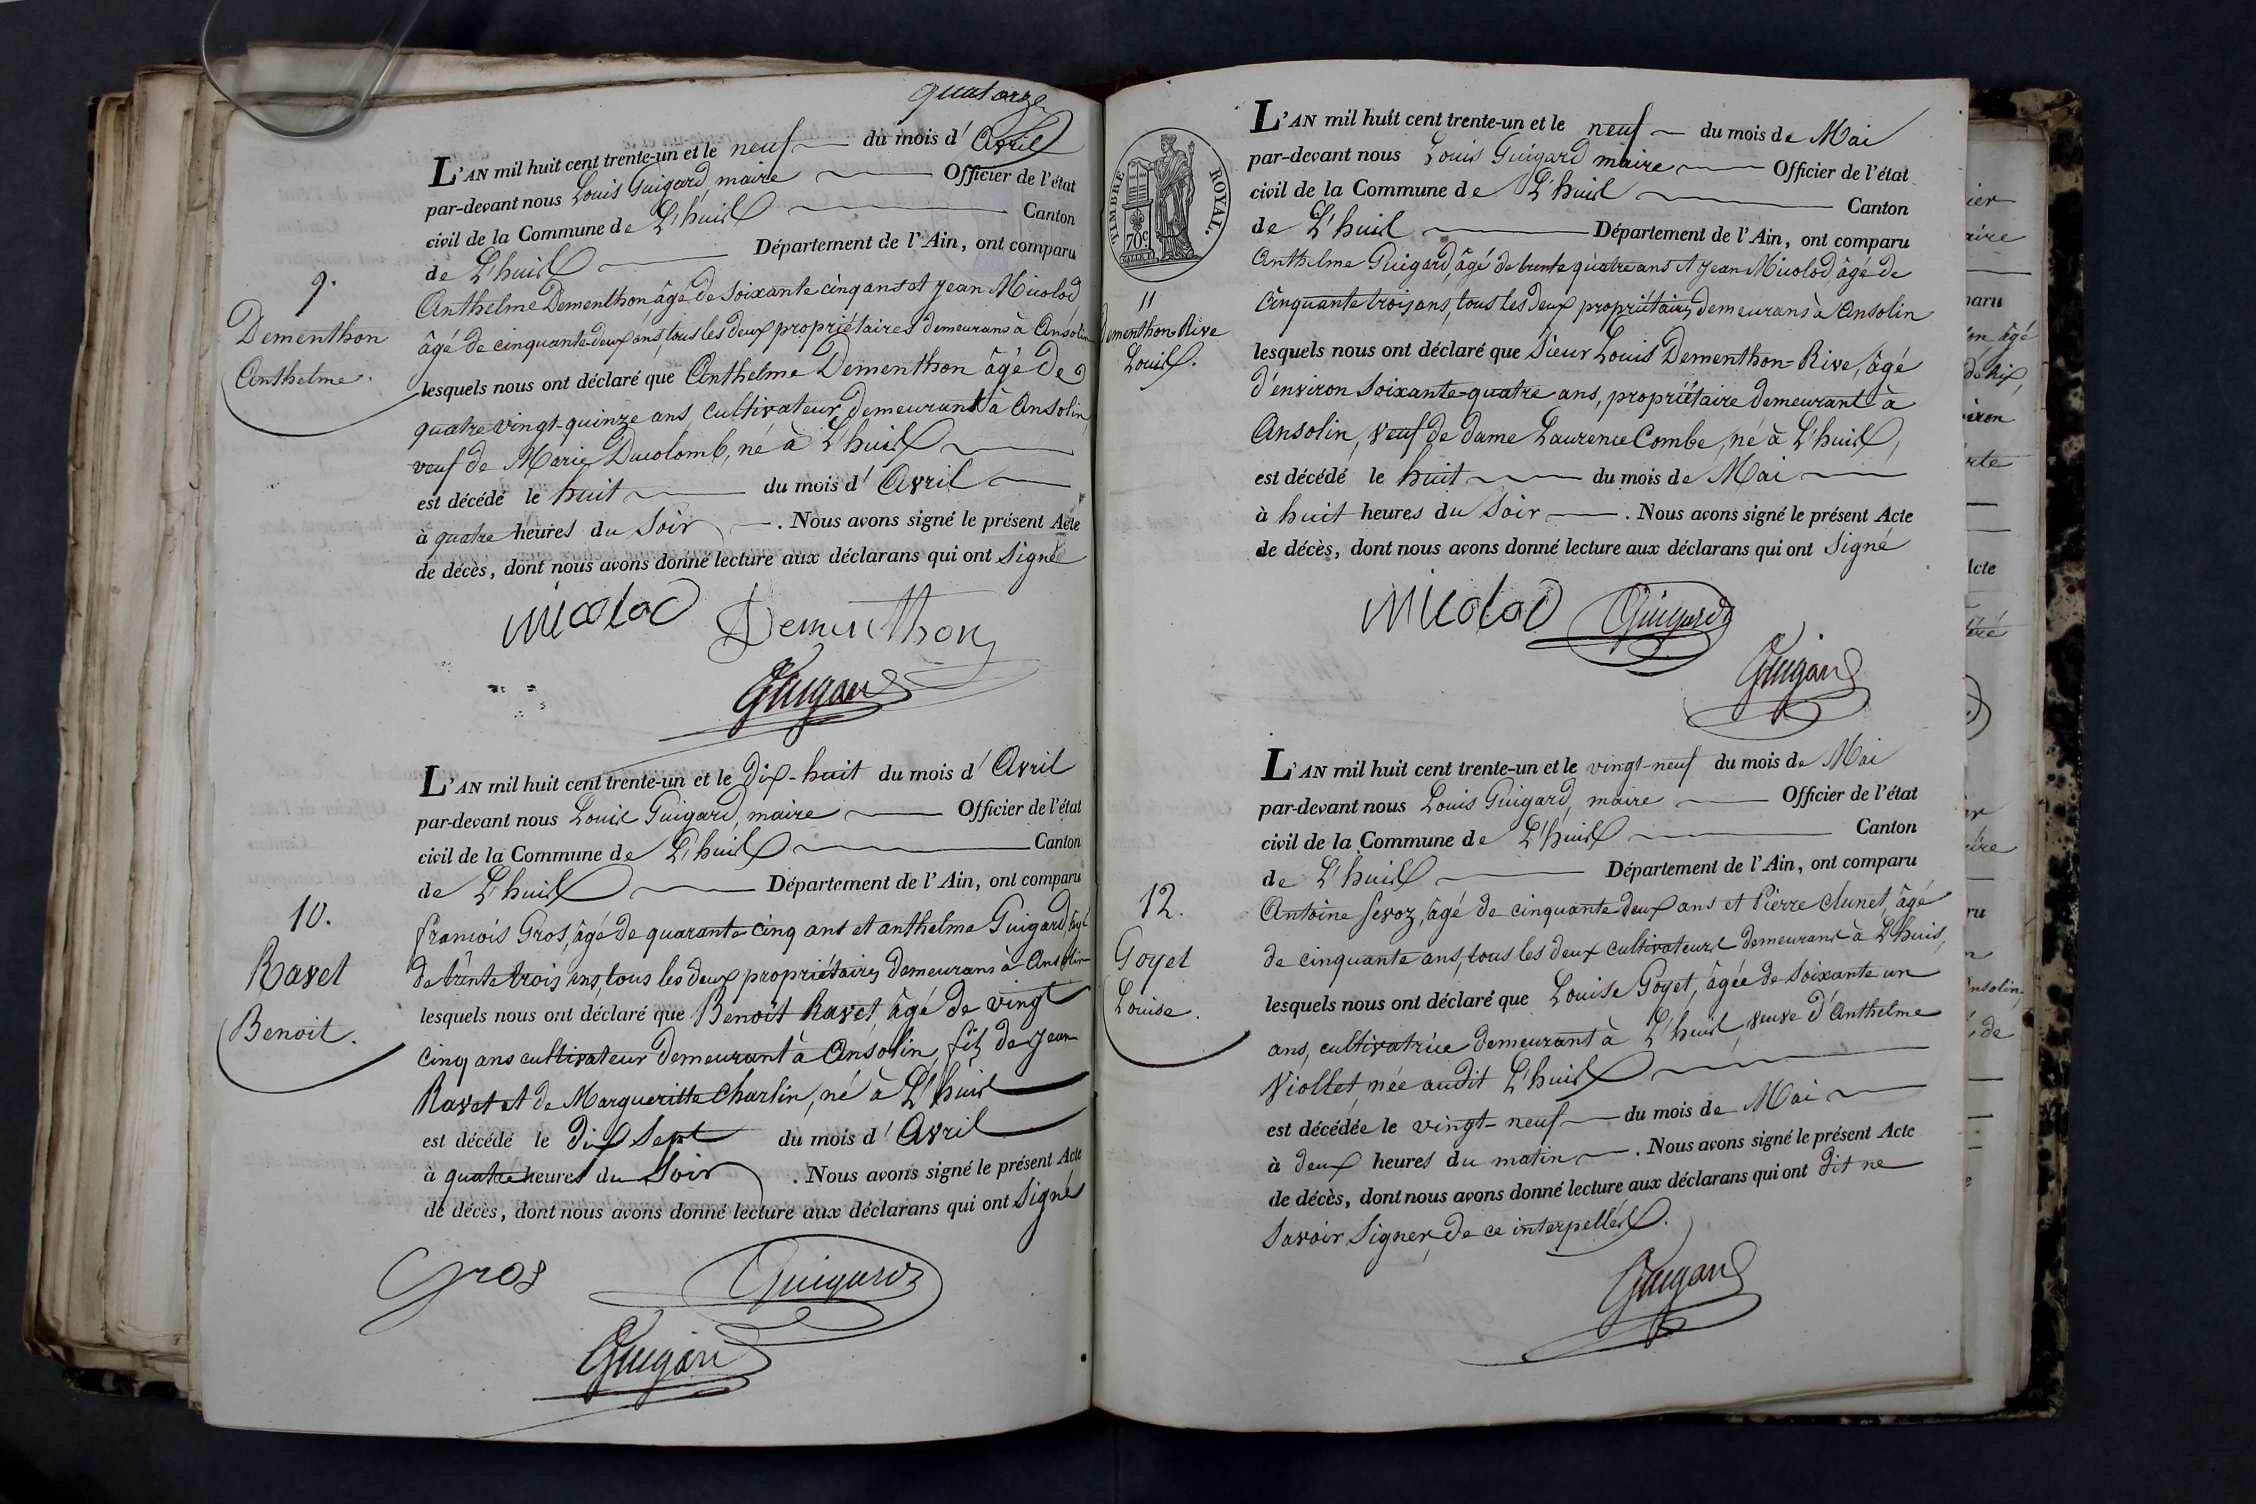 quatorze
L'AN mil huit cent trente-un et le neuf du mois d'Avril
par-devant nous Louis Guigard, maire Officier de l'état
civil de la Commune de L'huis Canton
de L'huis Département de l'Ain, ont comparu
Anthelme Dementhon, âgé de soixante cinq ans et Jean Micolod
âgé de cinquante-deux ans, tous les deux propriétaires demeurans à Ansolin
lesquels nous ont déclaré que Anthelme Dementhon âgé de
quatre vingt-quinze ans, cultivateur, demeurant à Ansolin,
veuf de Marie Ducolomb, né à L'huis
est décédé le huit du mois d'Avril
à quatre heures du Soir. Nous avons signé le présent Acte
de décès, dont nous avons donné lecture aux déclarans qui ont Signé
9.
Dementhon
Anthelme.
Micolod Dementhon
Guigard
L'AN mil huit cent trente-un et le dix-huit du mois d'Avril
par-devant nous Louis Guigard, maire Officier de l'état
civil de la Commune de L'huis Canton
de L'huis Département de l'Ain, ont comparu
françois Gros, âgé de quarante-cinq ans et anthelme Guigard, âgé
de trente trois ans, tous les deux propriétaires demeurans à Ansolin
lesquels nous ont déclaré que Benoît Ravet, âgé de vingt
cinq ans cultivateur demeurant à Ansolin, fils de Jean
Ravet et de Margueritte Charlin, né à L'huis
est décédé le dix Sept du mois d'Avril
à quatre heures du Soir. Nous avons signé le présent Acte
de décès, dont nous avons donné lecture aux déclarans qui ont Signés
10.
Ravet
Benoit.
Gros Guigard
Guigard
TIMBRE ROYAL.
70c
L'AN mil huit cent trente-un et le neuf du mois de Mai
par-devant nous Louis Guigard maire Officier de l'état
civil de la Commune de L'huis Canton
de L'huis Département de l'Ain, ont comparu
Anthelme Guigard, âgé de trente quatre ans et Jean Micolod, âgé de
Cinquante trois ans, tous les deux propriétaires demeurans à Ansolin
lesquels nous ont déclaré que Sieur Louis Dementhon-Rive, âgé
d'environ soixante-quatre ans, propriétaire demeurant à
Ansolin, veuf de dame Laurence Combe, né à L'huis,
est décédé le huit du mois de Mai
à huit heures du Soir. Nous avons signé le présent Acte
de décès, dont nous avons donné lecture aux déclarans qui ont Signé
11
Dementhon-Rive
Louis.
Micolod Guigard
Guigard
L'AN mil huit cent trente-un et le vingt-neuf du mois de Mai
par-devant nous Louis Guigard, maire Officier de l'état
civil de la Commune de L'huis Canton
de L'huis Département de l'Ain, ont comparu
Antoine Sevoz, âgé de cinquante-deux ans et Pierre Clunet, âgé
de cinquante ans, tous les deux cultivateurs demeurans à L'huis,
lesquels nous ont déclaré que Louise Goyet, âgée de soixante un
ans, cultivatrice demeurant à L'huis, veuve d'Anthelme
Viollet, née audit L'huis
est décédée le vingt-neuf du mois de Mai
à deux heures du matin. Nous avons signé le présent Acte
de décès, dont nous avons donné lecture aux déclarans qui ont dit ne
Savoir Signer, de ce interpellés.
12.
Goyet
Louise.
Guigard